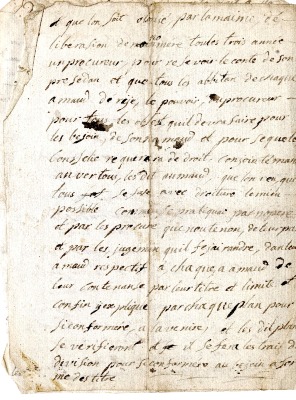 et que lon soit par la mainie, de
liberasion de nomere toutes trois année
un procureur pour re se voir le conte de son
pre sedan et que tous les abitan de chaque
amaud de reje le pouvoir, au procureur
pour tous les objet quil devra faire pour
les besoin, de son amaud et pour se que le
Conselie requerera de droit, con soit le man
au vertou, les dit aumaud, que lon ren qui
tous se fase avec droiture le mieu
possible comme se pratiquait pas nos pere
et par les procure que nous tenon de leur pa
et par les jugemen quil fejai randre, dan leur
amaud respectif a chaque, amaud de
leur contenanse par leur titre et limite et
confin yexpliqué par chaque plan pour
si conformere, a lavenire, et les dit plan
se verifieront et il se fera les trait de
division pour se conformere au
me des titre